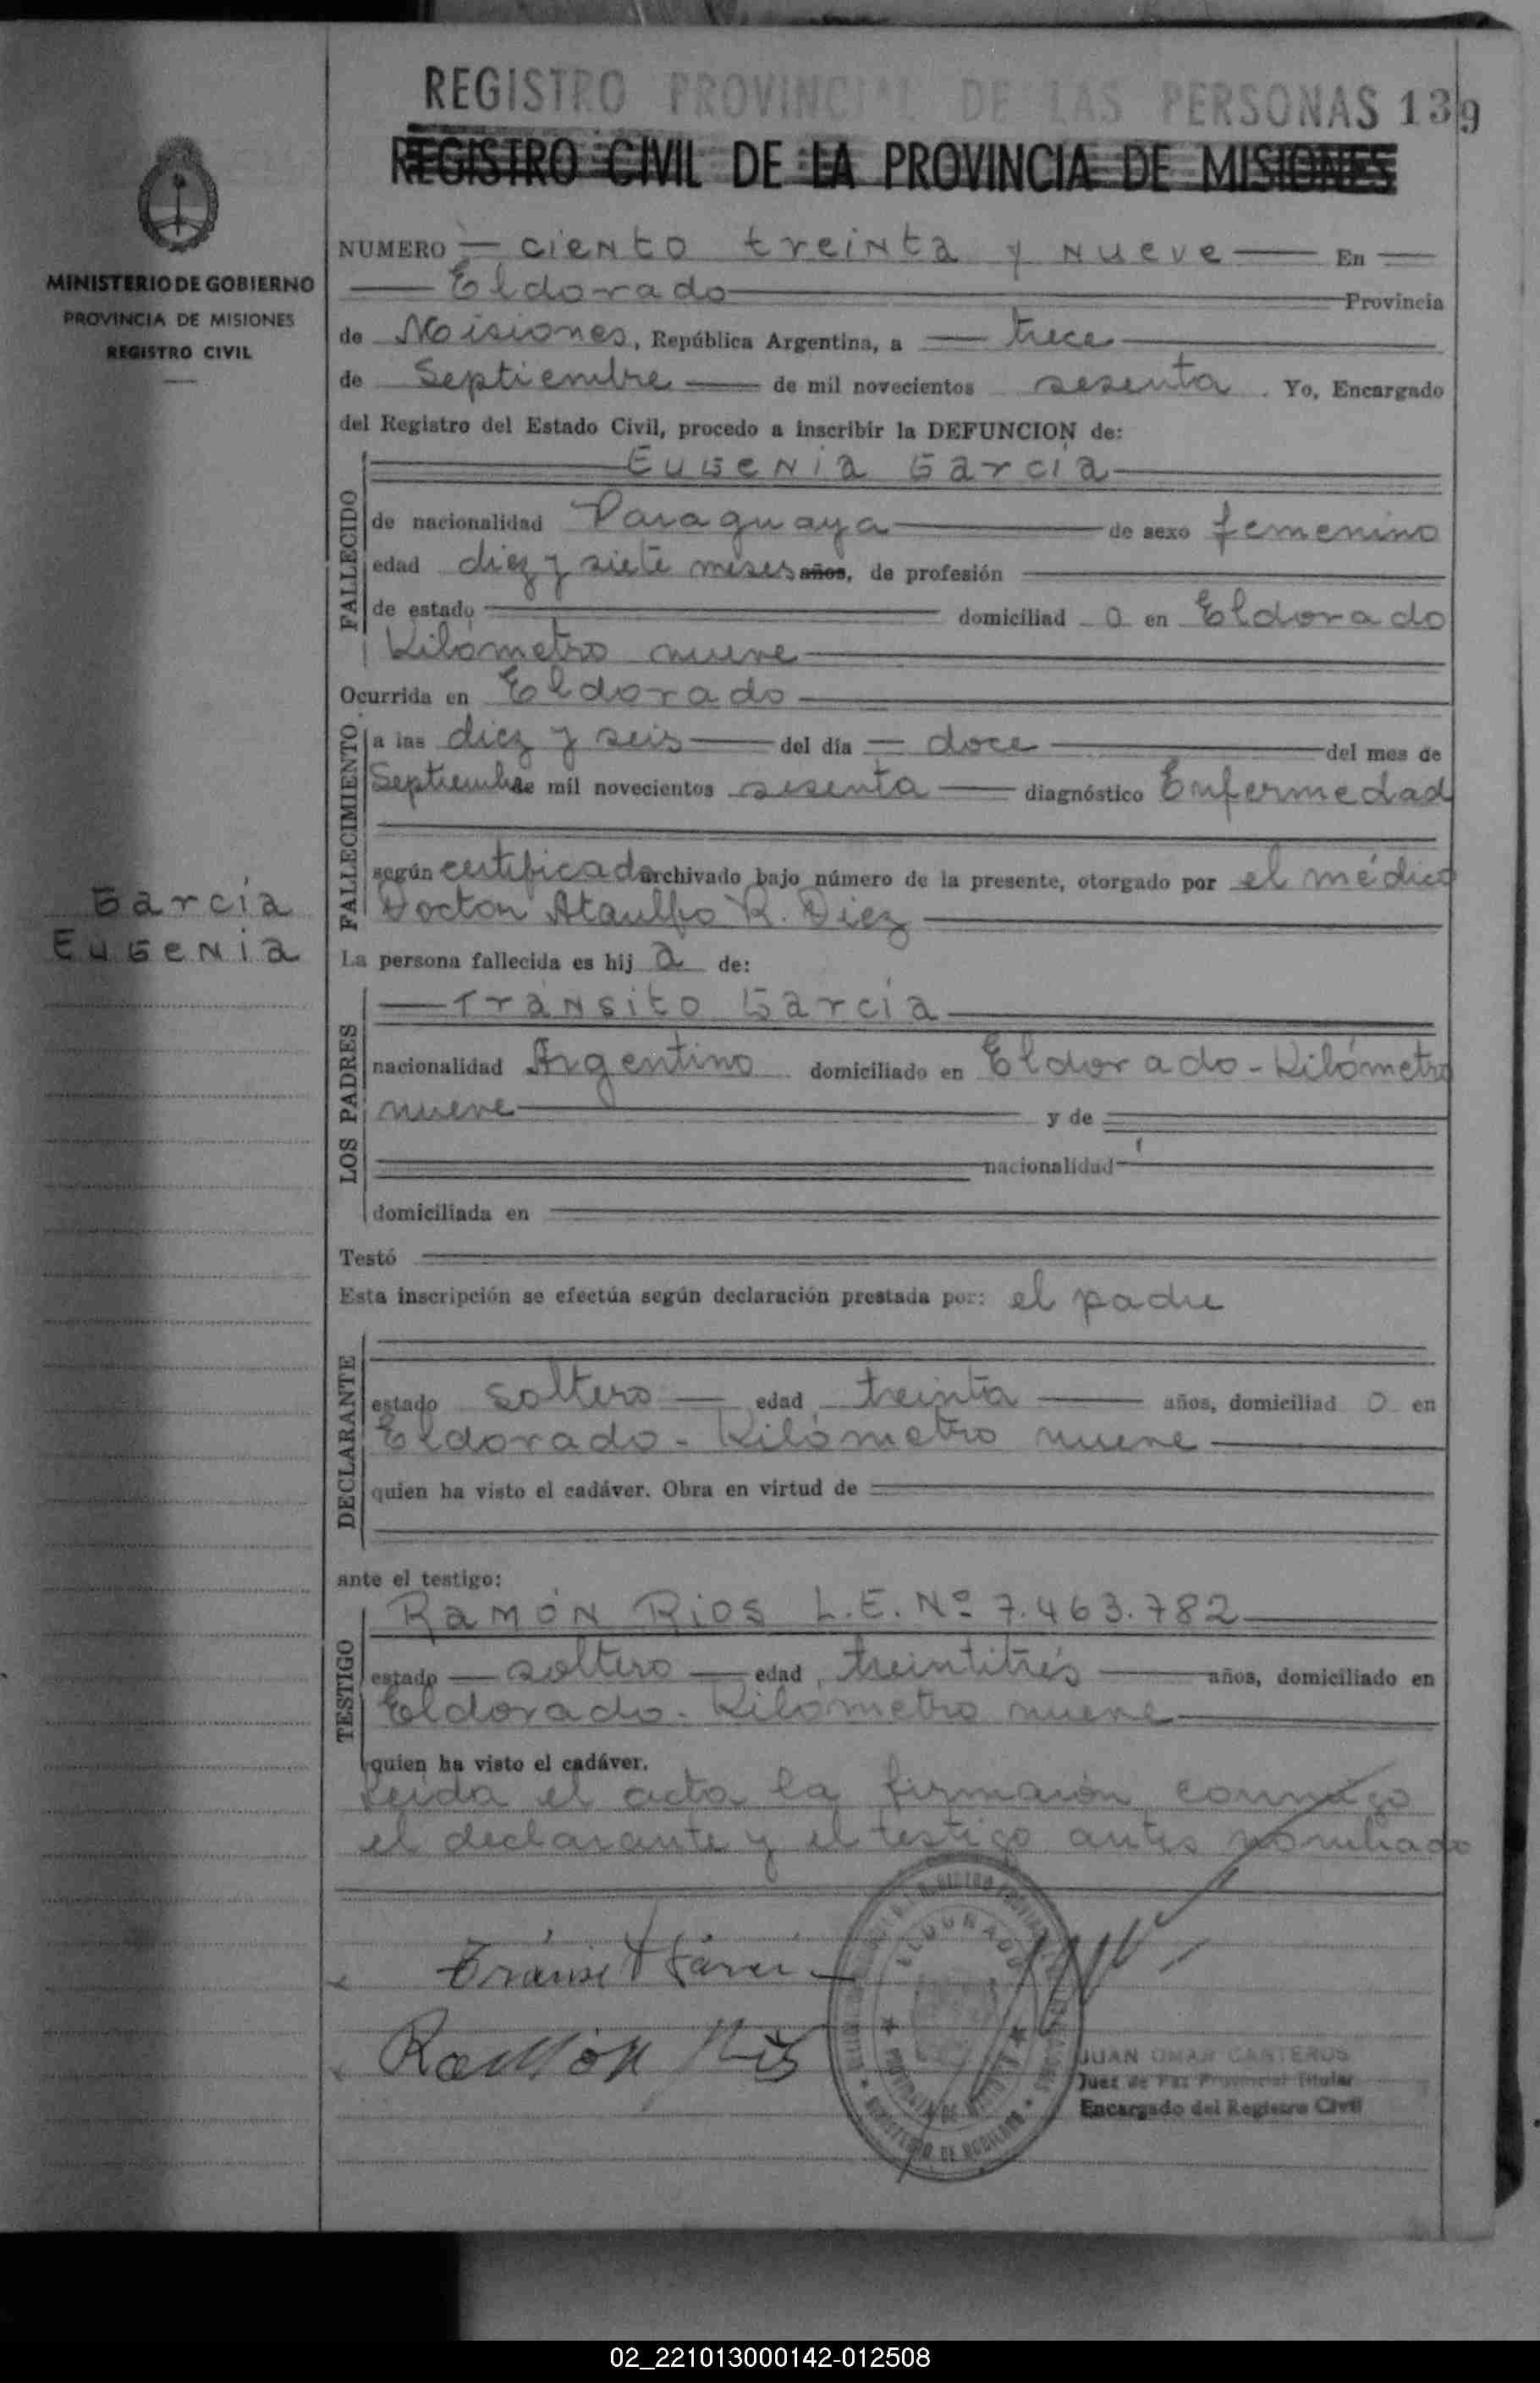 REGISTRO PROVINCIAL DE LAS PERSONAS 139
REGISTRO CIVIL DE LA PROVINCIA DE MISIONES
MINISTERIO DE GOBIERNO
PROVINCIA DE MISIONES
REGISTRO CIVIL
NUMERO ciento treinta y nueve En
Eldorado Provincia
de Misiones, República Argentina, a trece
de Septiembre de mil novecientos sesenta. Yo, Encargado
del Registro del Estado Civil, procedo a inscribir la DEFUNCION de:
Eugenia García
FALLECIDO
de nacionalidad Paraguaya de sexo femenino
edad diez y siete meses años, de profesión
de estado domiciliad o en Eldorado
Kilómetro nueve
Ocurrida en Eldorado
FALLECIMIENTO
a las diez y seis del día doce del mes de
Septiembre mil novecientos sesenta diagnóstico Enfermedad
según certificado archivado bajo número de la presente, otorgado por el médico
Doctor Ataulfo R. Diez
García
Eugenia
La persona fallecida es hij a de:
LOS PADRES
Tránsito García
nacionalidad Argentino domiciliado en Eldorado - Kilómetro
nueve y de
nacionalidad
domiciliada en
Testó
Esta inscripción se efectúa según declaración prestada por: el padre
DECLARANTE
estado soltero edad treinta años, domiciliad o en
Eldorado - Kilómetro nueve
quien ha visto el cadáver. Obra en virtud de
ante el testigo:
TESTIGO
Ramón Rios L.E. Nº 7.463.782
estado soltero edad treintitrés años, domiciliado en
Eldorado - Kilómetro nueve
quien ha visto el cadáver.
Leida el acta la firmaron conmigo
el declarante y el testigo antes nombrado
ELDORADO
PROVINCIA DE MISIONES
MINISTERIO DE GOBIERNO
Ramón Rios
JUAN OMAR CANTEROS
Juez de Paz Provincial Titular
Encargado del Registro Civil
02_221013000142-012508